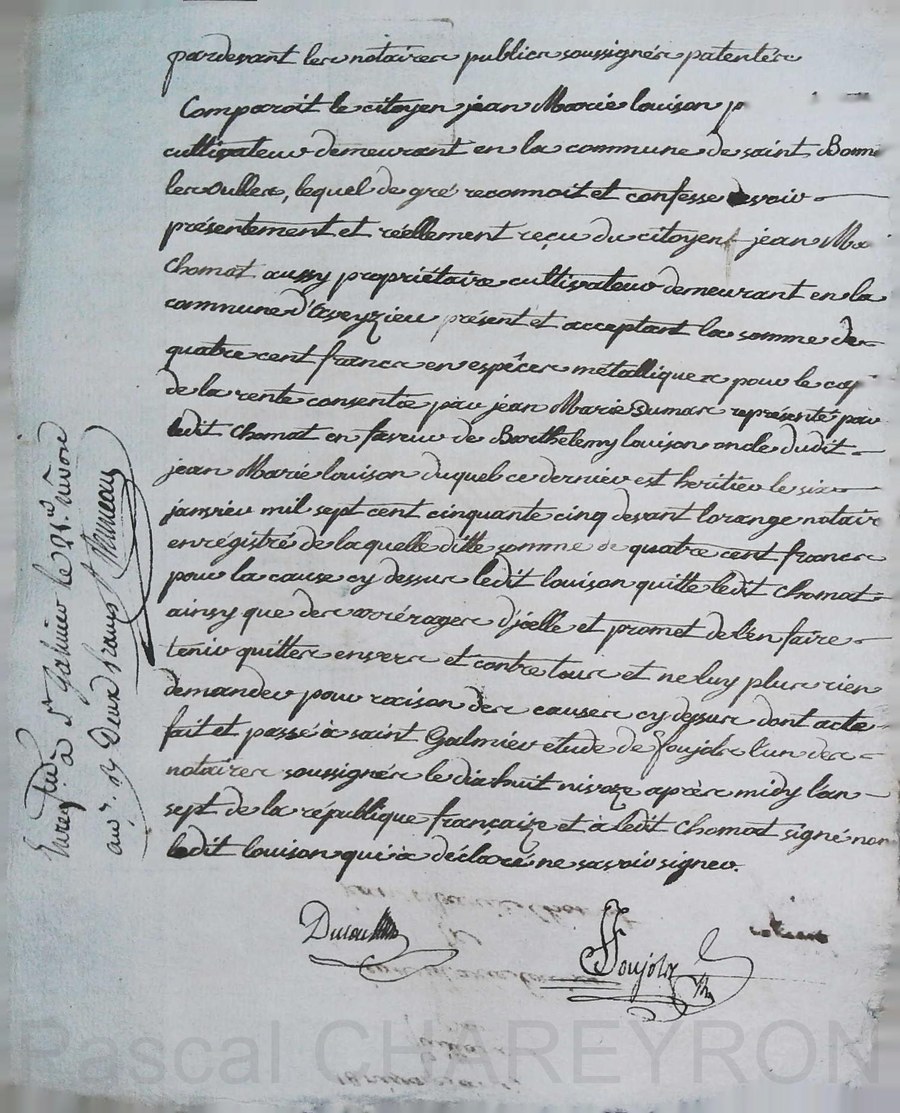 pardevant les notaires publics soussignés patentés
Comparoit le citoyen jean Marie louison
cultivateur demeurant en la commune de saint Bonn
les oulles, lequel de gré reconnoit et confesse avoir
présentement et réellement reçu du citoyen jean Ma
Chomat aussy propriétaire cultivateur demeurant en la
commune d'aveyzieu présent et acceptant la somme de
quatre cent francs en espêces métalliques pour le cap
de la rente consentie par jean Marie Dumas représenté par
ledit Chomat en faveur de Barthélemy louison oncle dudit
jean Marie louison duquel ce dernier est heritier le six
janvier mil sept cent cinquante cinq devant lorange notaire
enrégistré de laquelle ditte somme de quatre cent francs
pour la cause cy dessus ledit louison quitte ledit Chomat
ainsy que des arrérages d'jcelle et promet de l'en faire
tenir quitte envers et contre tous et ne luy plus rien
demander pour raison des causes cy dessus dont acte
fait et passé à saint Galmier etude de foujols l'un des
notaires soussignés le dix huit nivoze après midy l'an
sept de la république françaize et à ledit Chomat signé non
ledit louison qui à déclaré ne savoir signer.
foujols
Enregtré à St Galmier le
an 7. Deux francs
Pascal CHAREYRON